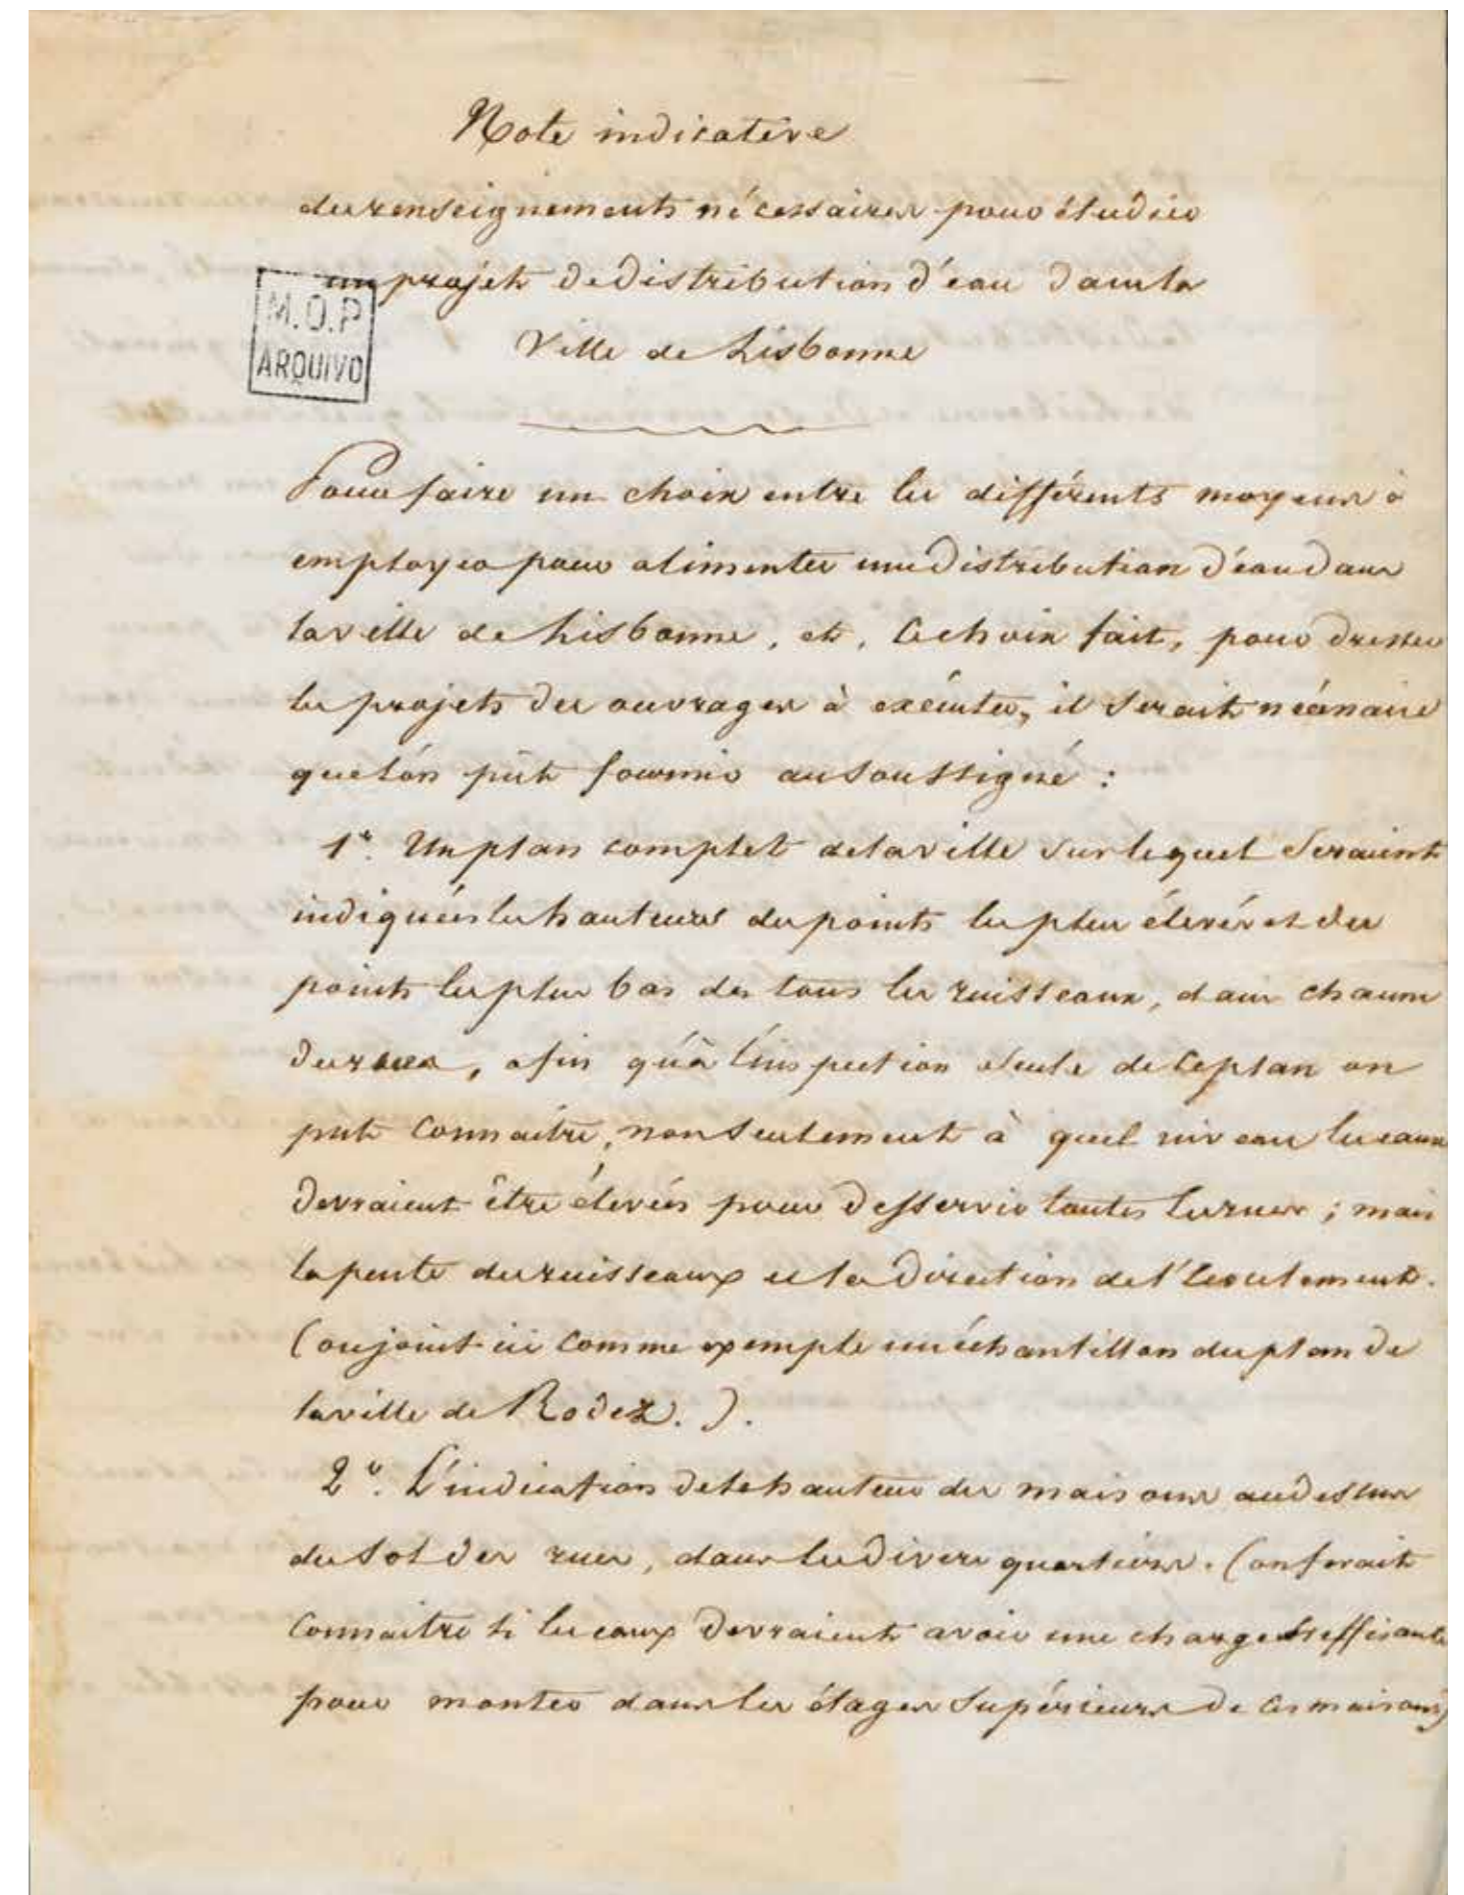 Note indicative
des renseignements nécessaires pour étudier
un projet de distribution d'eau dans la
M.O.P
ARQUIVO
Ville de Lisbonne
Pour faire un choix entre les différents moyens à
employer pour alimenter une distribution d'eau dans
la ville de Lisbonne, et, le choix fait, pour dresser
les projets des ouvrages à exécuter, il serait nécessaire
que l'on pût fournir au soussigné :
1º. Un plan complet de la ville sur lequel seraient
indiquées les hauteurs des points les plus élevés et des
points les plus bas de tous les ruisseaux, dans chacune
des rues, afin qu'à l'inspection seule de ce plan on
put connaître, non seulement à quel niveau les eaux
devraient être élevées pour desservir toutes les rues ; mais
la pente des ruisseaux et la direction de l'écoulement.
(on joint ici comme exemple un échantillon du plan de
la ville de Rodez.).
2º. L'indication de la hauteur des maisons au dessus
du sol des rues, dans les divers quartiers. (on ferait
connaître si les eaux devraient avoir une charge suffisante
pour monter dans les étages supérieurs de ces maisons)